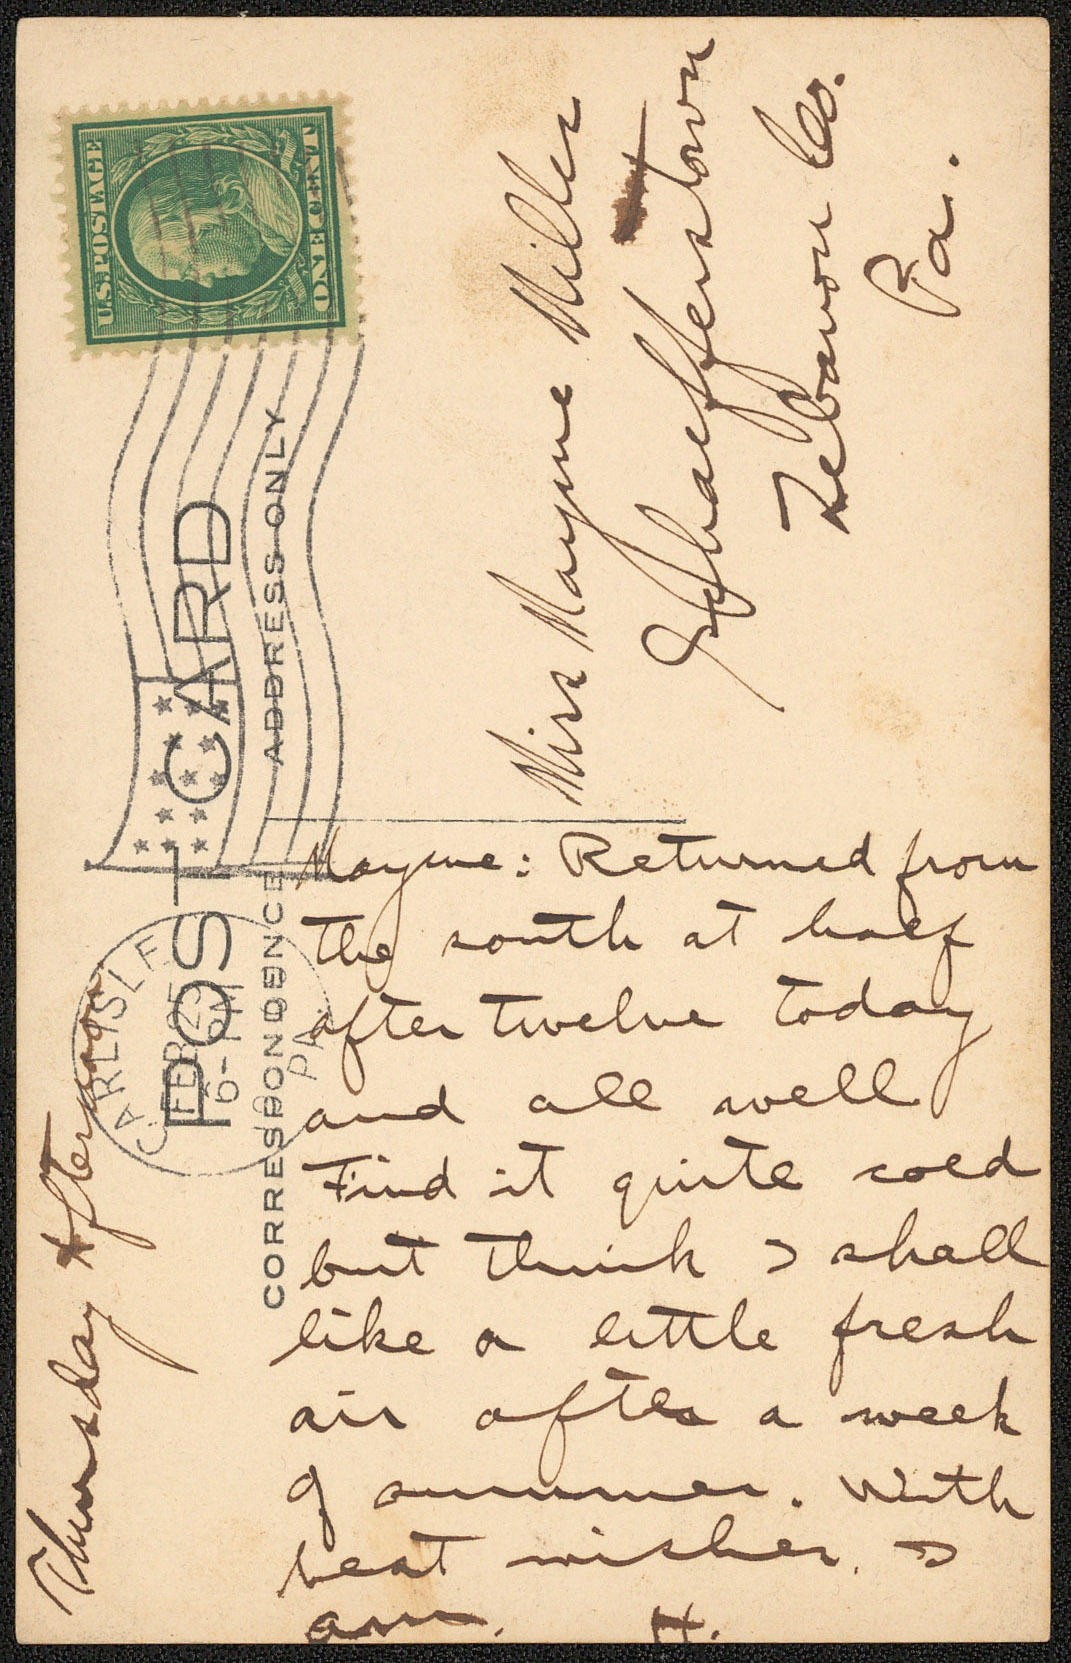 U.S. POSTAGE
ONE CENT
POST CARD
CORRESPONDENCE
ADDRESS ONLY
CARLISLE
6-PM
PA.
Miss Mayme Miller
Schaefferstown
Lebanon Co.
Pa.
Thursday Afternoon
Mayme: Returned from
the south at half
after twelve today
and all well
Find it quite cold
but think I shall
like a little fresh
air after a week
of summer. With
best wishes. I
am. H.